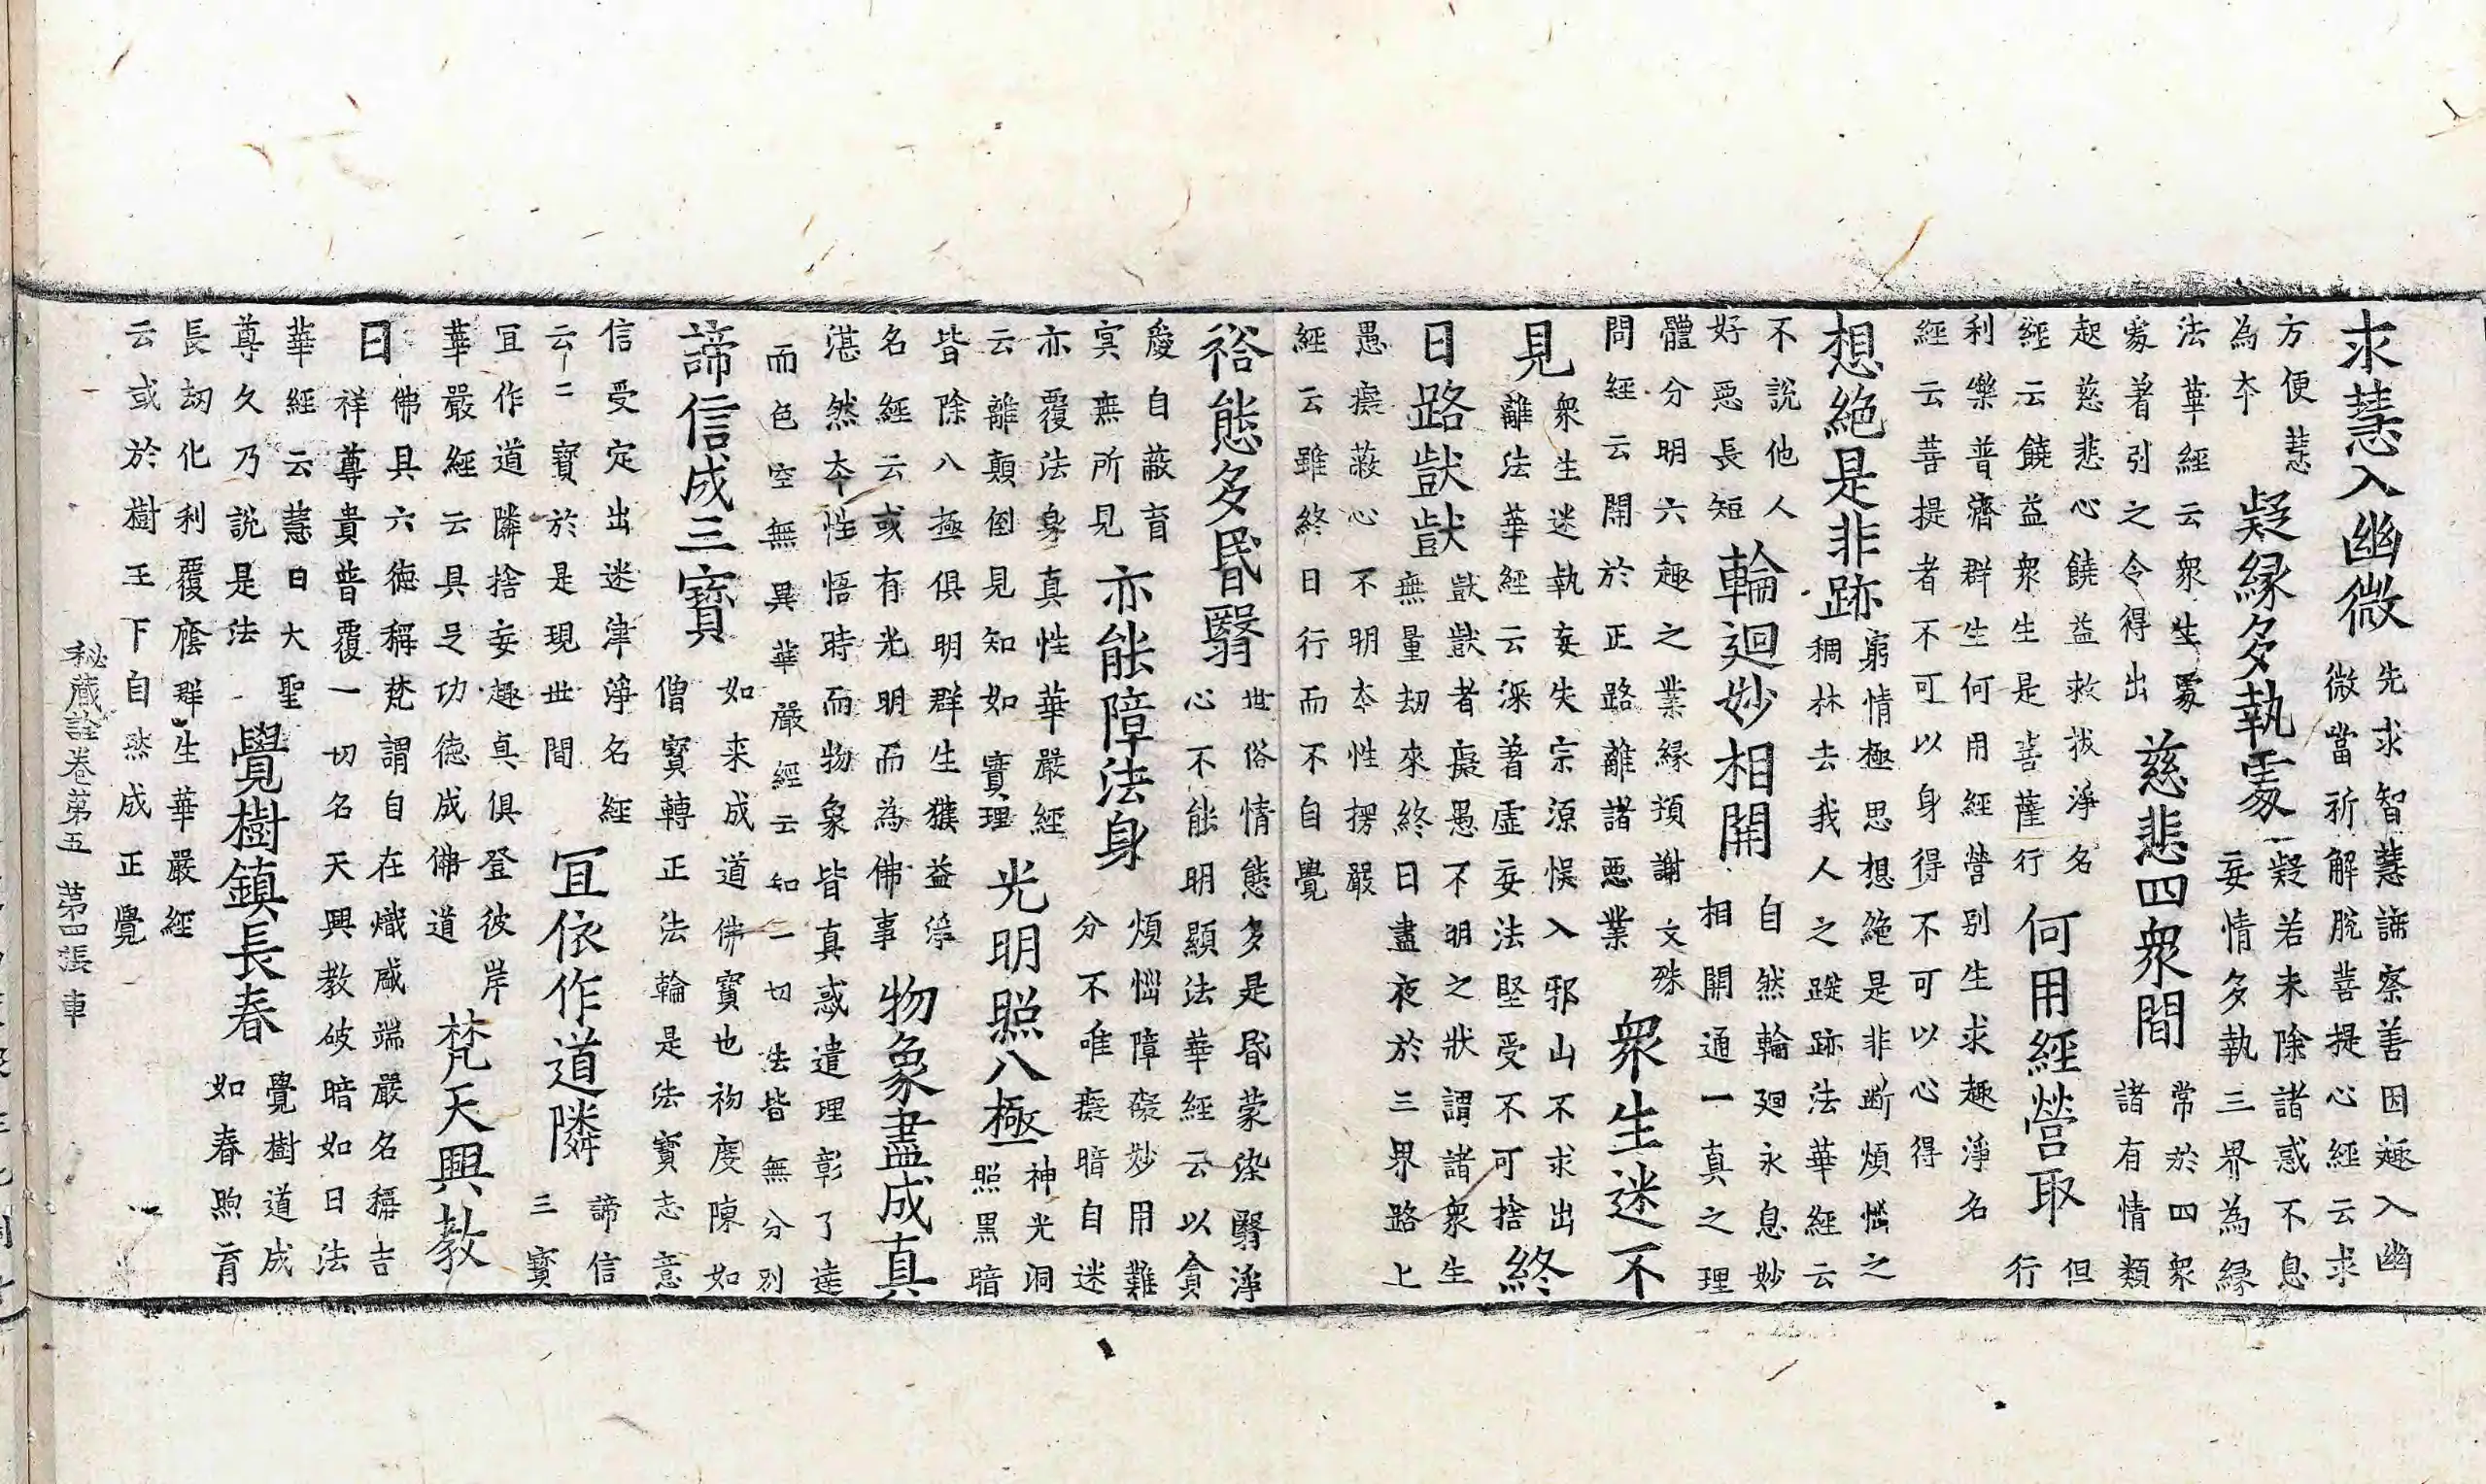 求慧入幽微
先求智慧諦察善因趣入幽
微當祈解脫菩提心經云求
方便慧
為本
疑緣多執處
疑若未除諸惑不息
妄情多執三界為緣
法華經云衆生處
處著引之令得出
慈悲四衆間
常於四衆
諸有情類
起慈悲心饒益救拔淨名
經云饒益衆生是菩薩行
何用經營取
但
行
利樂普濟群生何用經營别生求趣淨名
經云菩提者不可以身得不可以心得
想絶是非跡
窮情極思想絶是非斷煩惱之
稠林去我人之蹤跡法華經云
不說他人
好惡長短
輪迴妙相開
自然輪迴永息妙
相開通一真之理
體分明六趣之業緣頓謝文殊
問經云開於正路離諸惡業
衆生迷不
見
衆生迷執妄失宗源悞入邪山不求出
離法華經云深著虛妄法堅受不可捨
終
日路獃獃
獃獃者癡愚不明之狀謂諸衆生
無量劫來終日盡夜於三界路上
愚癡蔽心不明本性楞嚴
經云雖終日行而不自覺
裕態多昬翳
世俗情態多是昬蒙染翳淨
心不能明顯法華經云以貪
愛自蔽盲
冥無所見
亦能障法身
煩惱障礙妙用難
分不唯癡暗自迷
亦覆法身真性華嚴經
云離顛倒見知如實理
光明照八極
神光洞
照黑暗
皆除八極俱明群生獲益淨
名經云或有光明而為佛事
物象盡成真
湛然本性悟時而物象皆真惑遣理彰了達
而色空無異華嚴經云知一切法皆無分別
諦信成三寶
如来成道佛寶也初度陳如
僧寶轉正法輪是法寶志意
信受定出迷津淨名經
云二寶於是現世間
宜依作道隣
諦信
三寶
宜作道隣捨妄趣真俱登彼岸
華嚴經云具足功德成佛道
梵天興教
日
佛具六德稱梵謂自在熾盛端嚴名稱吉
祥尊貴普覆一切名天興教破暗如日法
華經云慧日大聖
尊久乃說是法
覺樹鎮長春
覺樹道成
如春煦育
長劫化利覆廕群生華嚴經
云或於樹王下自然成正覺
秘藏詮卷第五 第四張 車